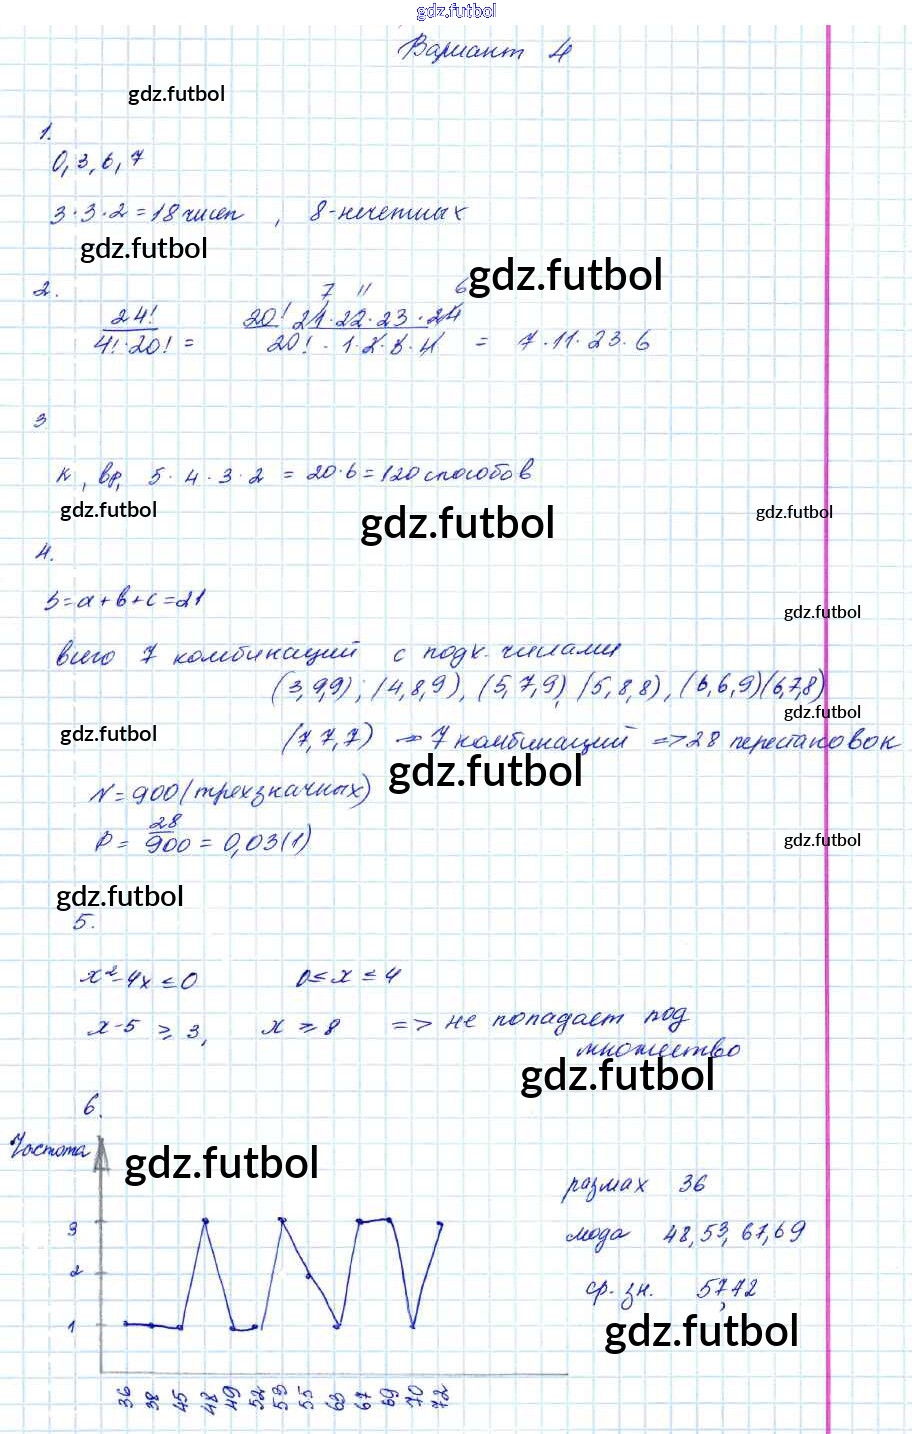 gdz.futbol
Вариант 4
gdz.futbol
1.
0, 3, 6, 7
3·3·2=18 чисел , 8-нечетных
gdz.futbol
gdz.futbol
2.
7 11 6
24! 20! 21·22·23·24
4!·20! = 20! · 1·2·3·4 = 7·11·23·6
3
К, вр, 5·4·3·2 = 20·6=120 способов
gdz.futbol
gdz.futbol
gdz.futbol
4.
S=a+b+c=21
gdz.futbol
всего 7 комбинаций с подх. числами
(3,9,9); (4,8,9), (5,7,9), (5,8,8), (6,6,9)(6,7,8)
gdz.futbol
gdz.futbol
(7,7,7) => 7 комбинаций => 28 перестановок
gdz.futbol
N=900 (трехзначных)
28
P= 900 = 0,03(1)
gdz.futbol
gdz.futbol
5.
x²-4x ≤ 0 0 ≤ x ≤ 4
x-5 ≥ 3, x ≥ 8 => не попадает под
множество
gdz.futbol
6.
Частота
gdz.futbol
размах 36
3
мода 48, 53, 67, 69
2
ср. зн. 57,42
gdz.futbol
1
36 38 45 48 49 52 53 55 63 67 69 70 72